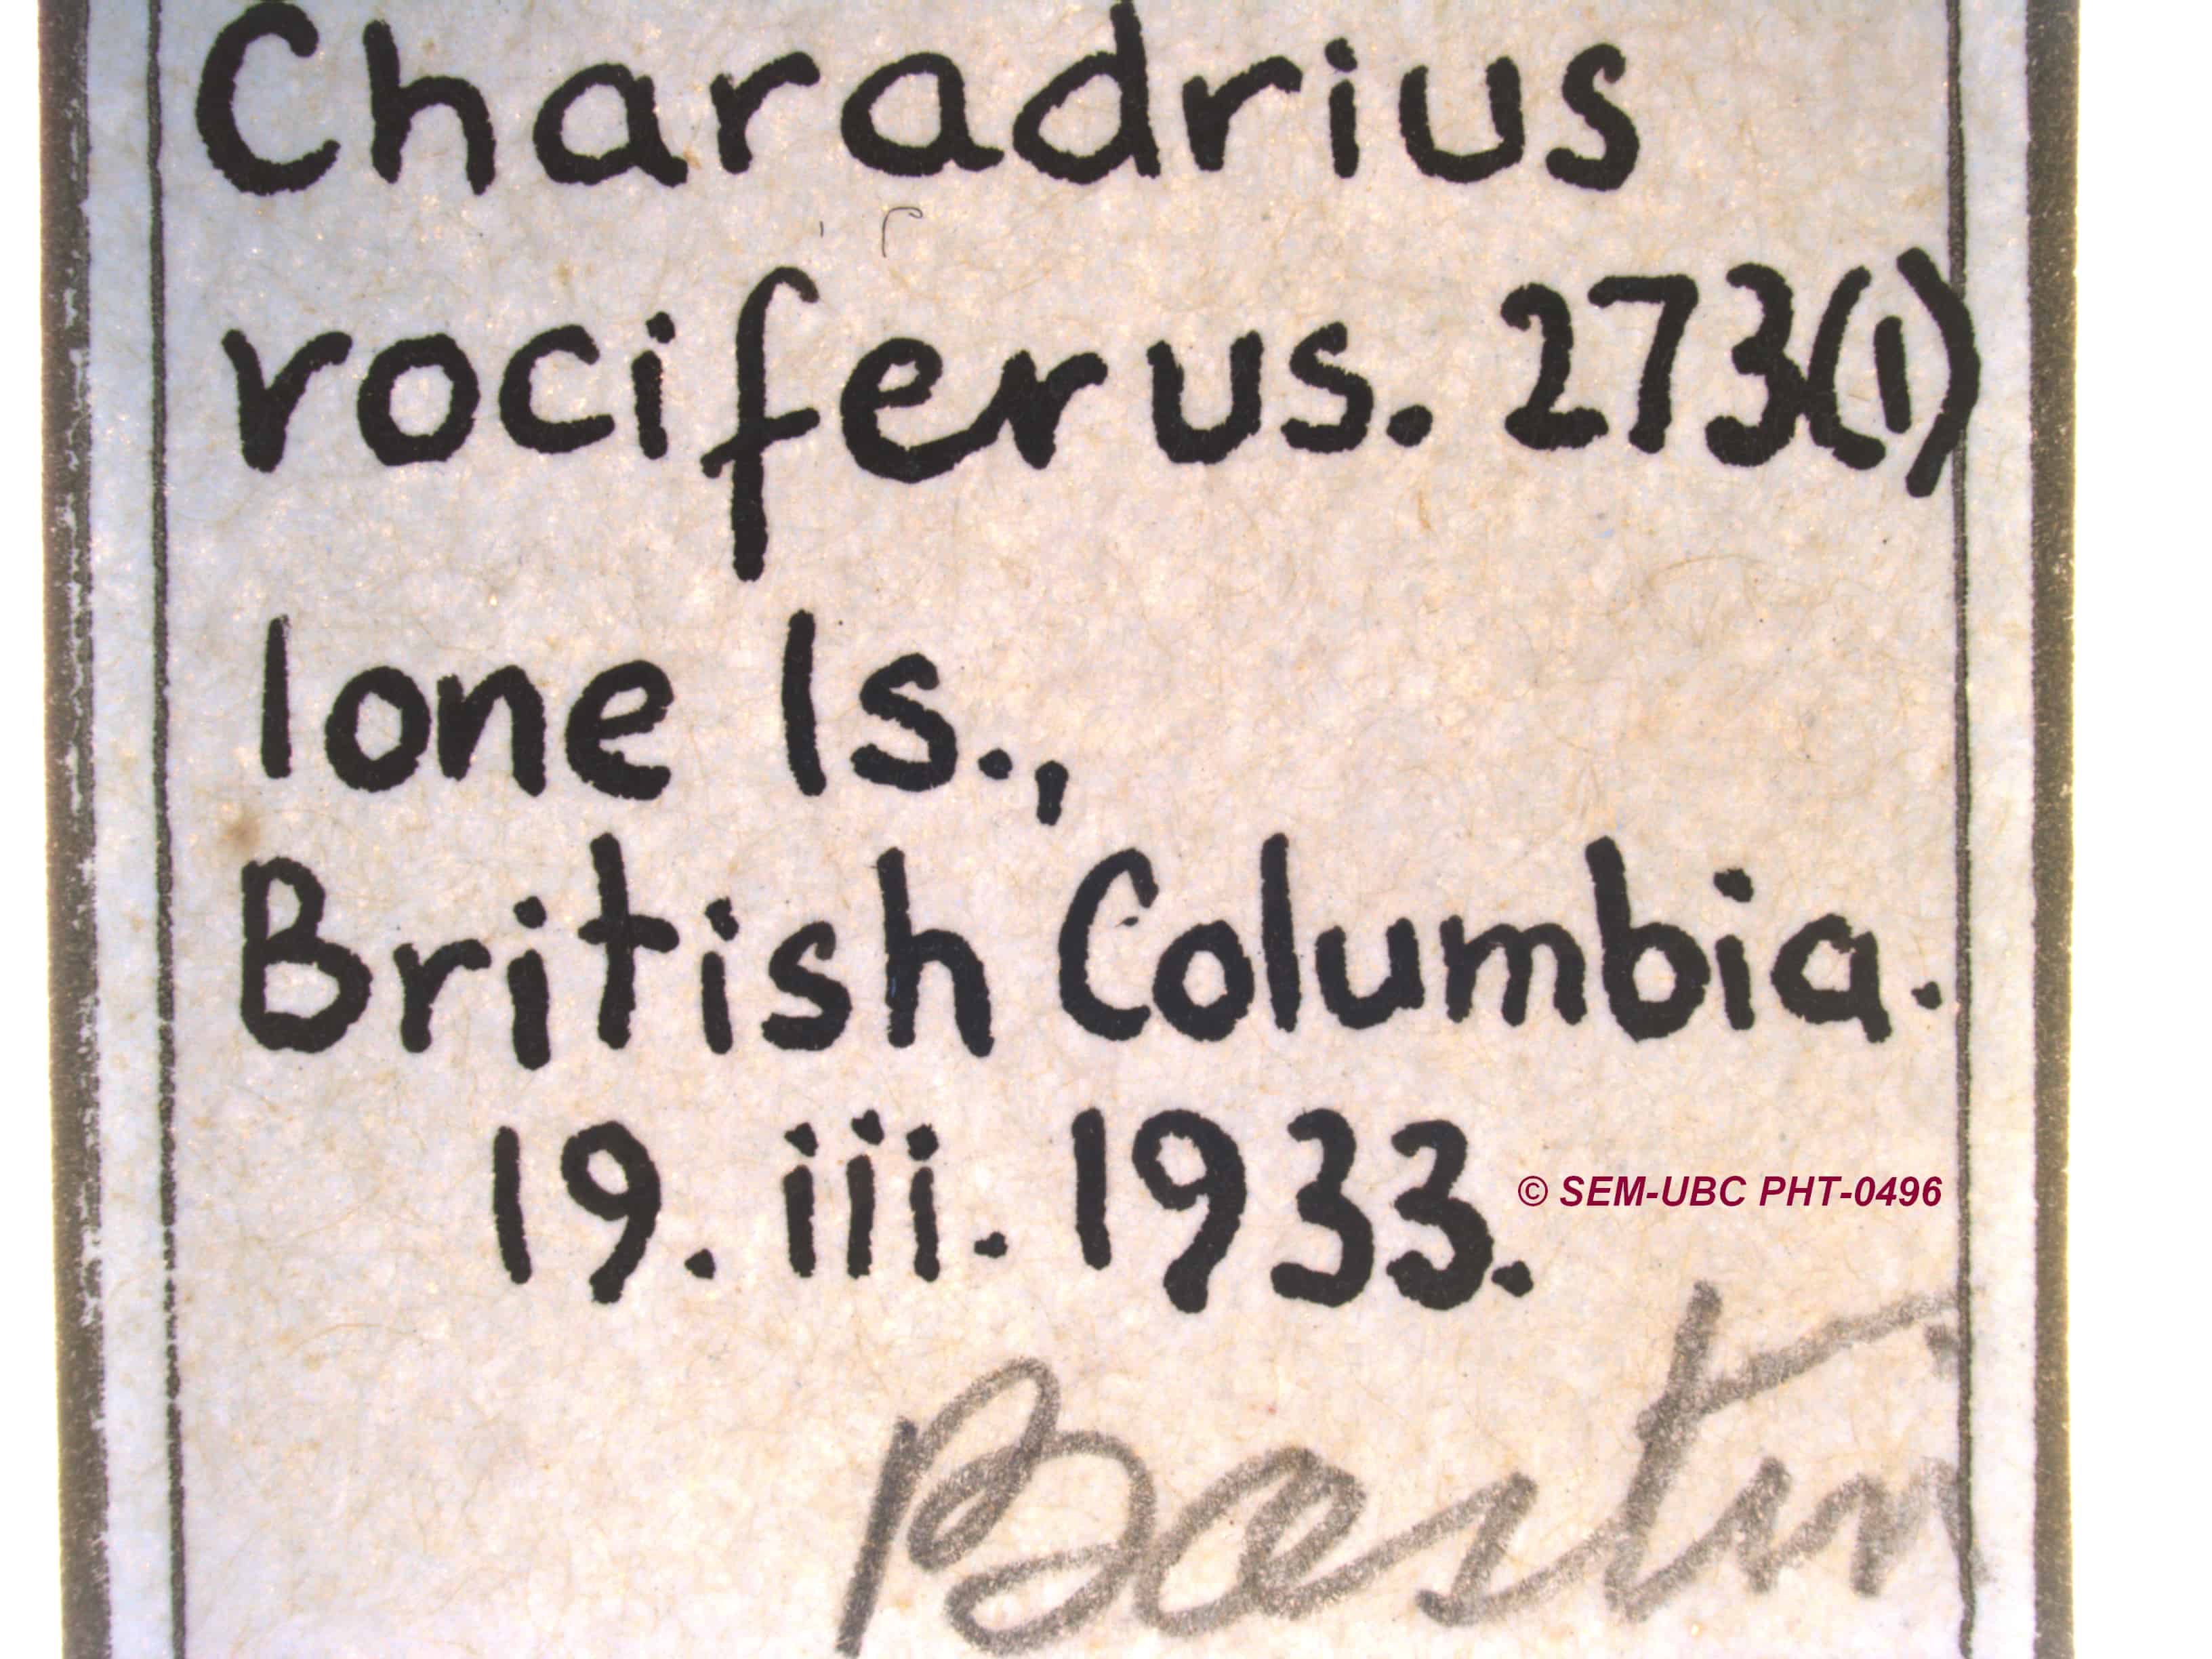 Charadrius
vociferus. 273(1)
Ione Is.,
British Columbia.
19. iii. 1933.
© SEM-UBC PHT-0496